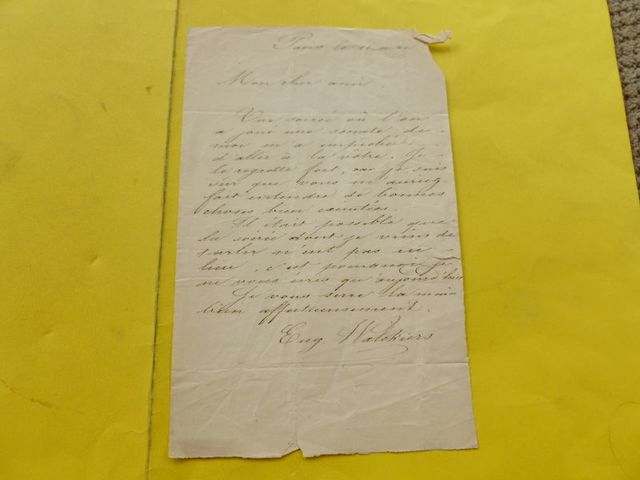 Paris le 11 mai
Mon cher ami
Une soirée où l'on
a joué une comité de
moi m'a empêché
d'aller à la vôtre. Je
le regrette fort, car je suis
sûr que vous m'auriez
fait entendre de bonnes
choses bien exécutées.
Il était possible que
la soirée dont je viens de
parler n'eut pas eu
lieu, c'est pourquoi je
ne vous écris qu'aujourd'hui
Je vous serre la main
bien affectueusement.
Eug Walckiers